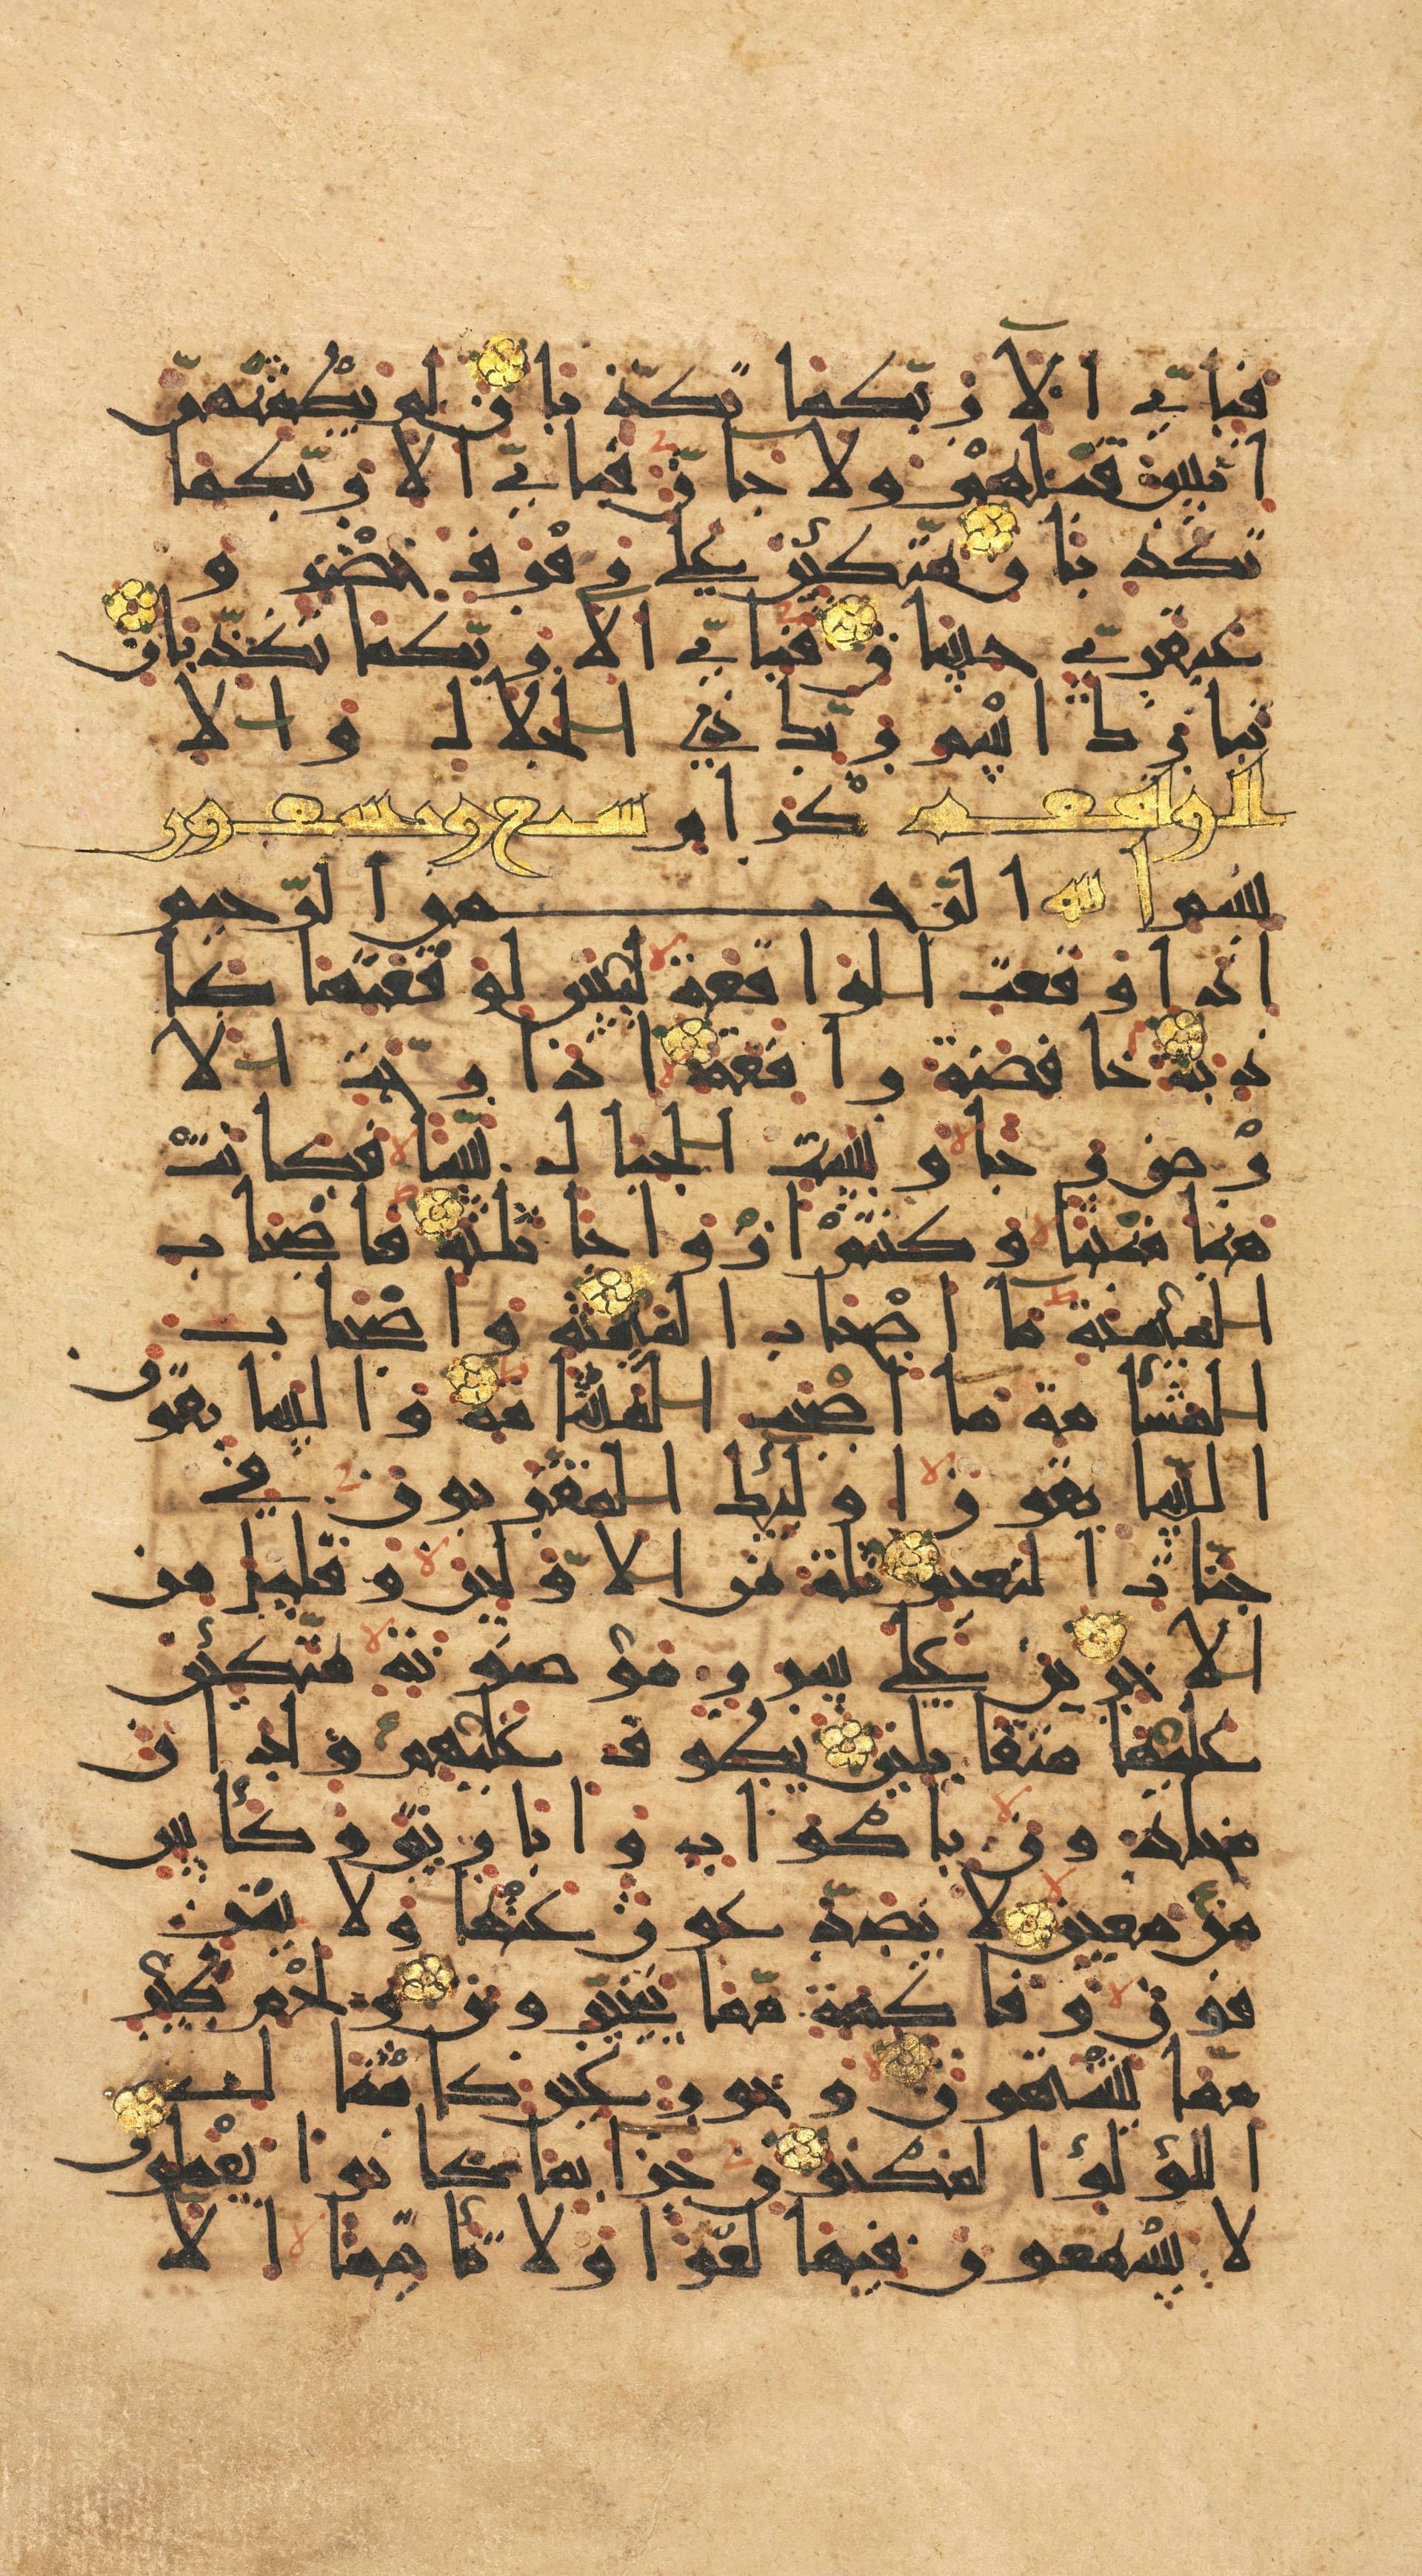 فباي الا ربكما تكذبان لم يطمثهن
انس قبلهم ولا جان فباي الا ربكما
تكذبان متكئين على رفرف خضر و
عبقري حسان فباي الا ربكما تكذبان
تبارك اسم ربك ذي الجلال والا
الواقعه كرام سبع وتسعون
بسم الله الرحمن الرحيم
اذا وقعت الواقعة ليس لوقعتها كا
ذبة خافضة رافعة اذا رجت الا
رض رجا وبست الجبال بسا فكانت
هبا منبثا وكنتم ازواجا ثلثة فاصحاب
الميمنة ما اصحاب الميمنة واصحاب
المشأمة ما اصحب المشأمة والسابقون
السابقون اولئك المقربون في
جنات النعيم ثلة من الاولين وقليل من
الاخرين على سرر موضونة متكئين
عليها متقابلين يطوف عليهم ولدان
مخلدون باكواب واباريق وكأس
من معين لا يصدعون عنها ولا ينز
فون وفاكهة مما يتخيرون ولحم طير
مما يشتهون وحور عين كامثال
اللؤلؤا المكنون جزا بما كانوا يعملون
لا يسمعون فيها لغوا ولا تأثيما الا